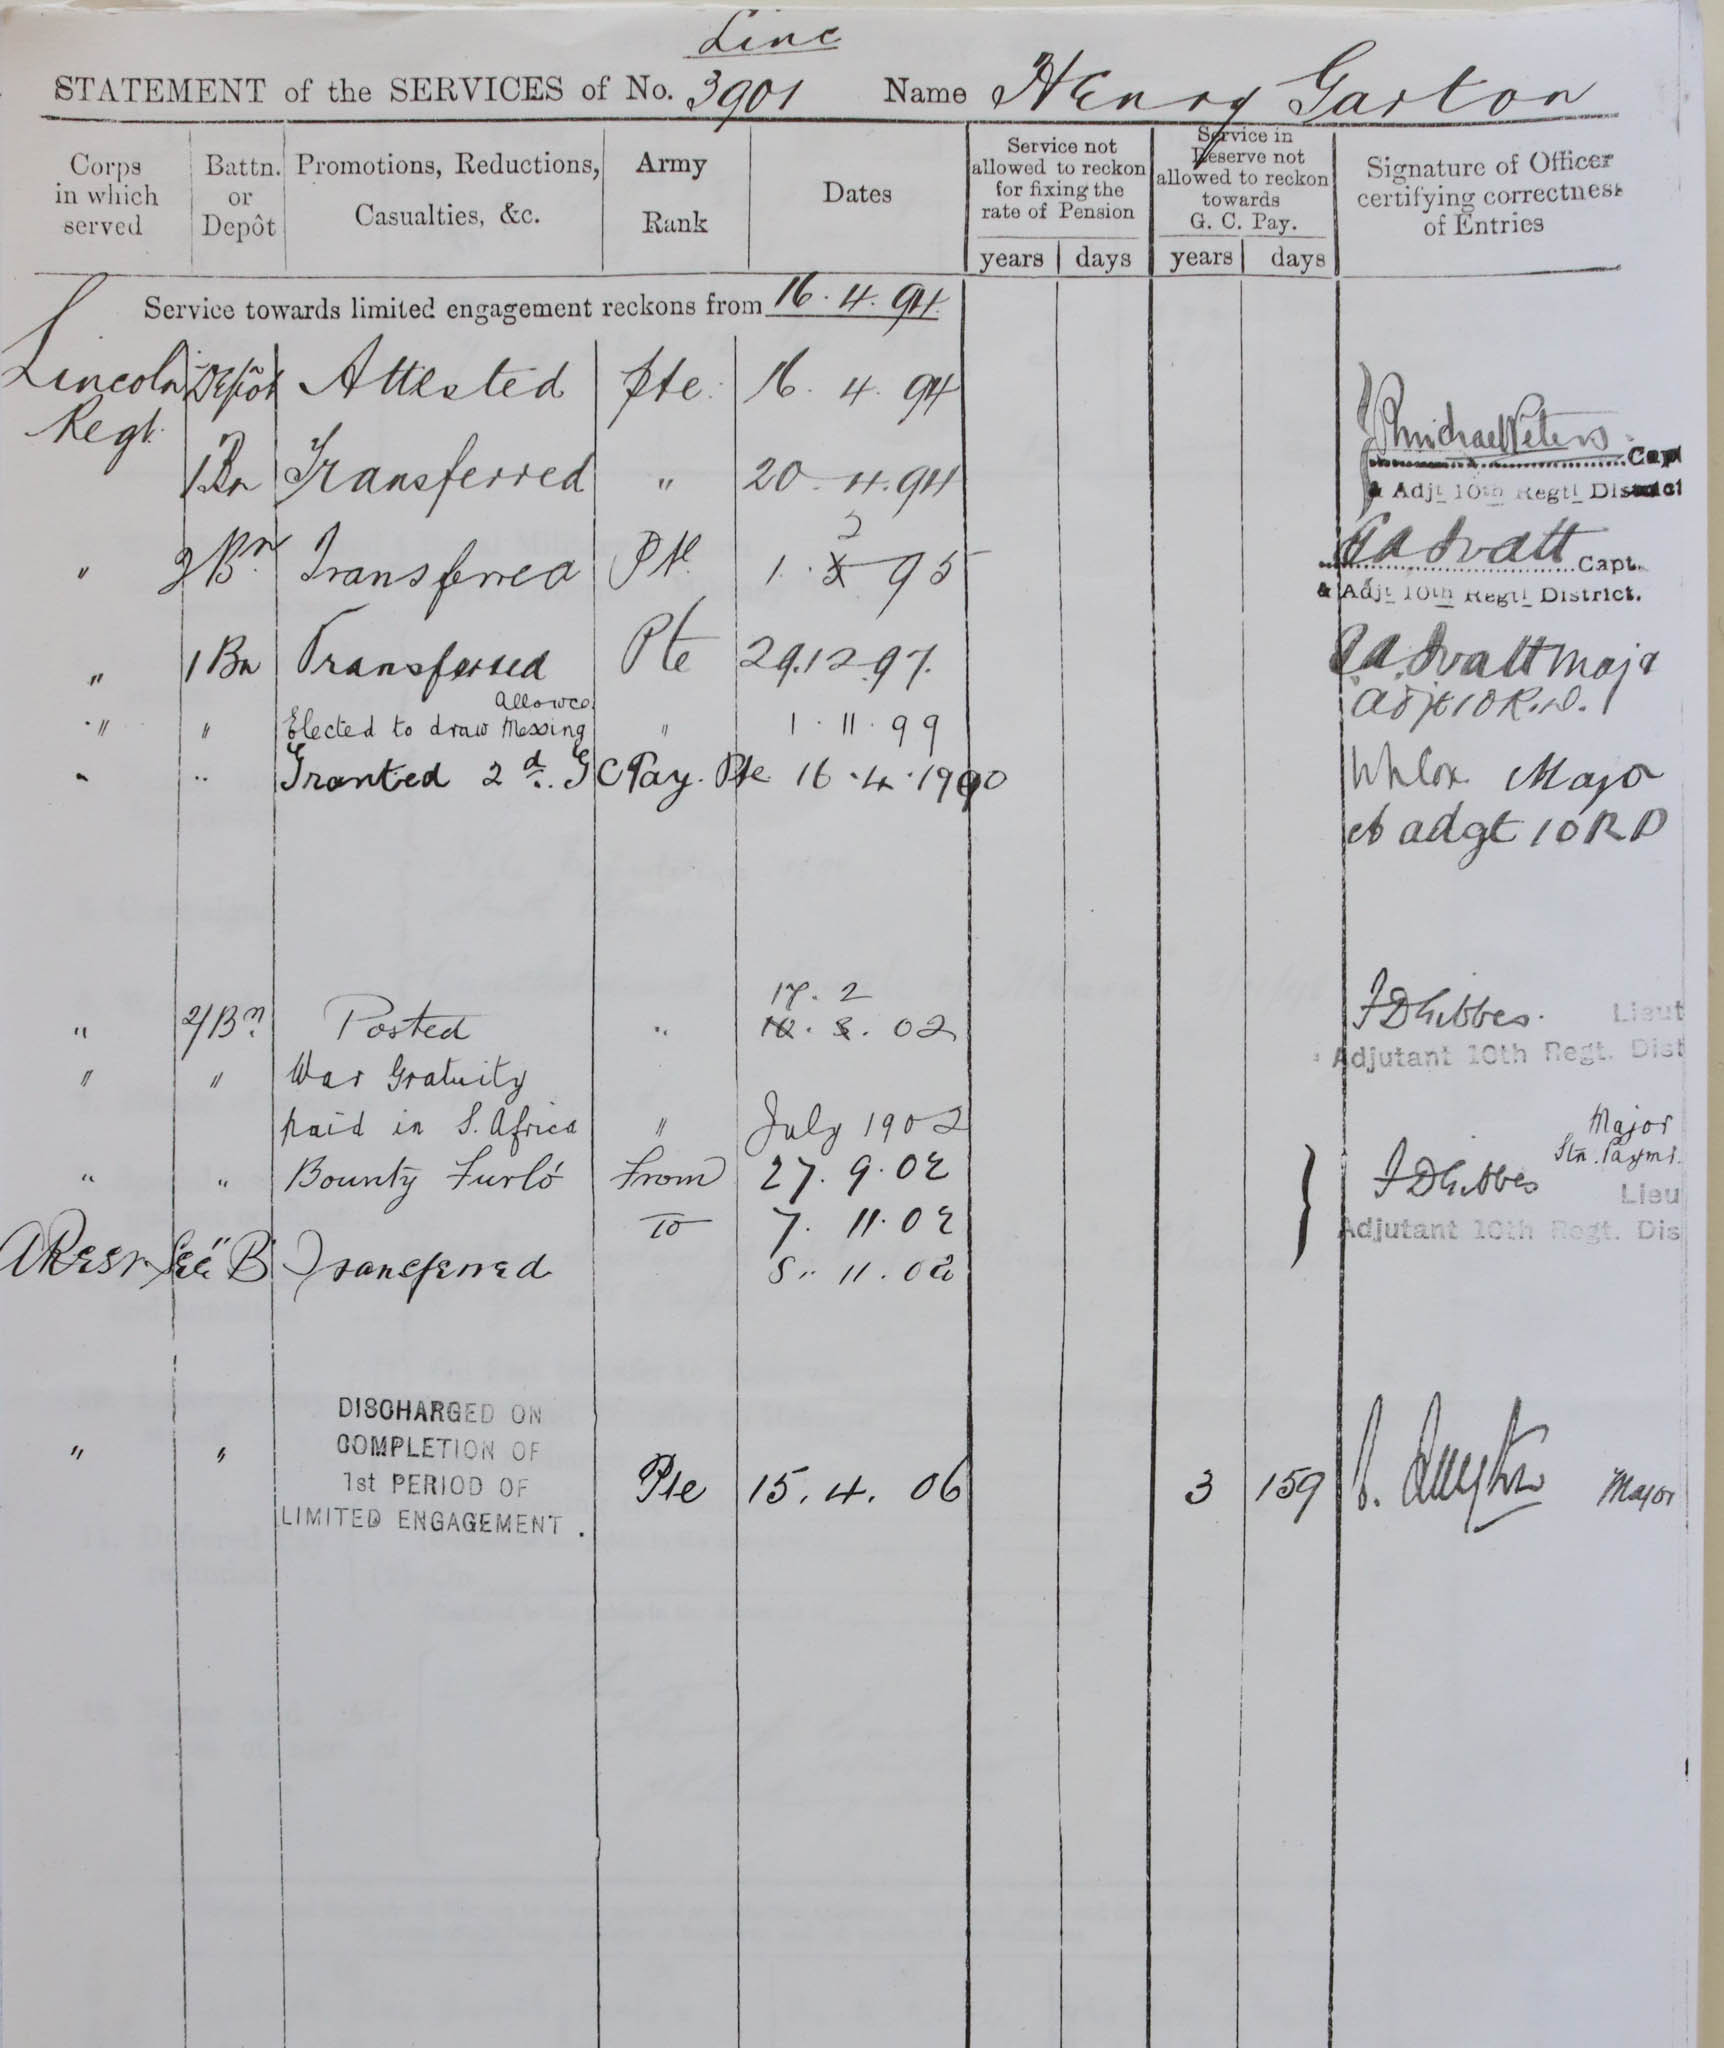 Linc
STATEMENT of the SERVICES of No. 3901 Name Henry Garton
Corps in which served
Battn. or Depôt
Promotions, Reductions, Casualties, &c.
Army Rank
Dates
Service not allowed to reckon for fixing the rate of Pension
years days
Service in Reserve not allowed to reckon towards G. C. Pay.
years days
Signature of Officer certifying correctness of Entries
Service towards limited engagement reckons from 16.4.94
Lincoln Depôt Attested Pte. 16. 4. 94
Regt.
1 Bn Transferred " 20. 4. 94
Capt
& Adjt 10th Regtl District
" 2 Bn Transferred Pte 1. 3 2 95
Capt.
& Adjt 10th Regtl District.
" 1 Bn Transferred Pte 29.12.97.
Majr
Adjt 10 R.D.
" " Elected to draw Messing Allowce. " 1. 11. 99
" " Granted 2d. G C Pay. Pte 16.4.1900
Cox Major
adgt 10 R D
17. 2
" 2/Bn Posted " 02
F D Gibbes. Lieut
Adjutant 10th Regt. Dist
" " War Gratuity
paid in S. Africa " July 1902
Major
Stn. Paymr.
" " Bounty Furlo From 27. 9. 02
F D Gibbes Lieu
To 7. 11. 02
Adjutant 10th Regt. Dis
A Resr Sec "B" Transferred 8. 11. 02
" " DISCHARGED ON
COMPLETION OF
1st PERIOD OF
LIMITED ENGAGEMENT. Pte 15. 4. 06 3 159 Major